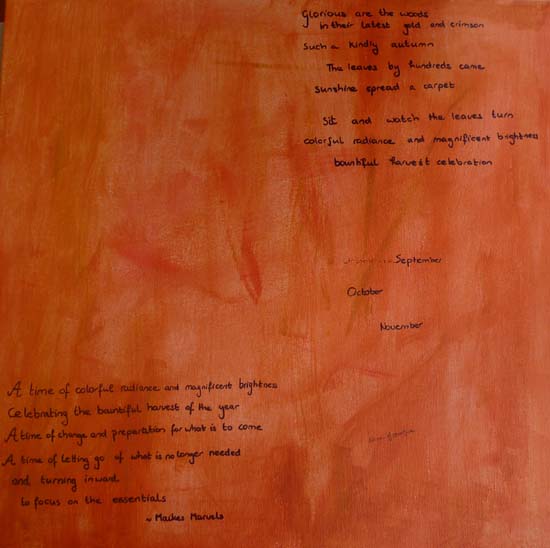 Glorious are the woods
in their latest gold and crimson
Such a kindly autumn
The leaves by hundreds came
Sunshine spread a carpet
Sit and watch the leaves turn
colorful radiance and magnificent brightness
bountiful harvest celebration
September
October
November
A time of colorful radiance and magnificent brightness
Celebrating the bountiful harvest of the year
A time of change and preparation for what is to come
A time of letting go of what is no longer needed
and turning inward
to focus on the essentials
~ Maikes Marvels